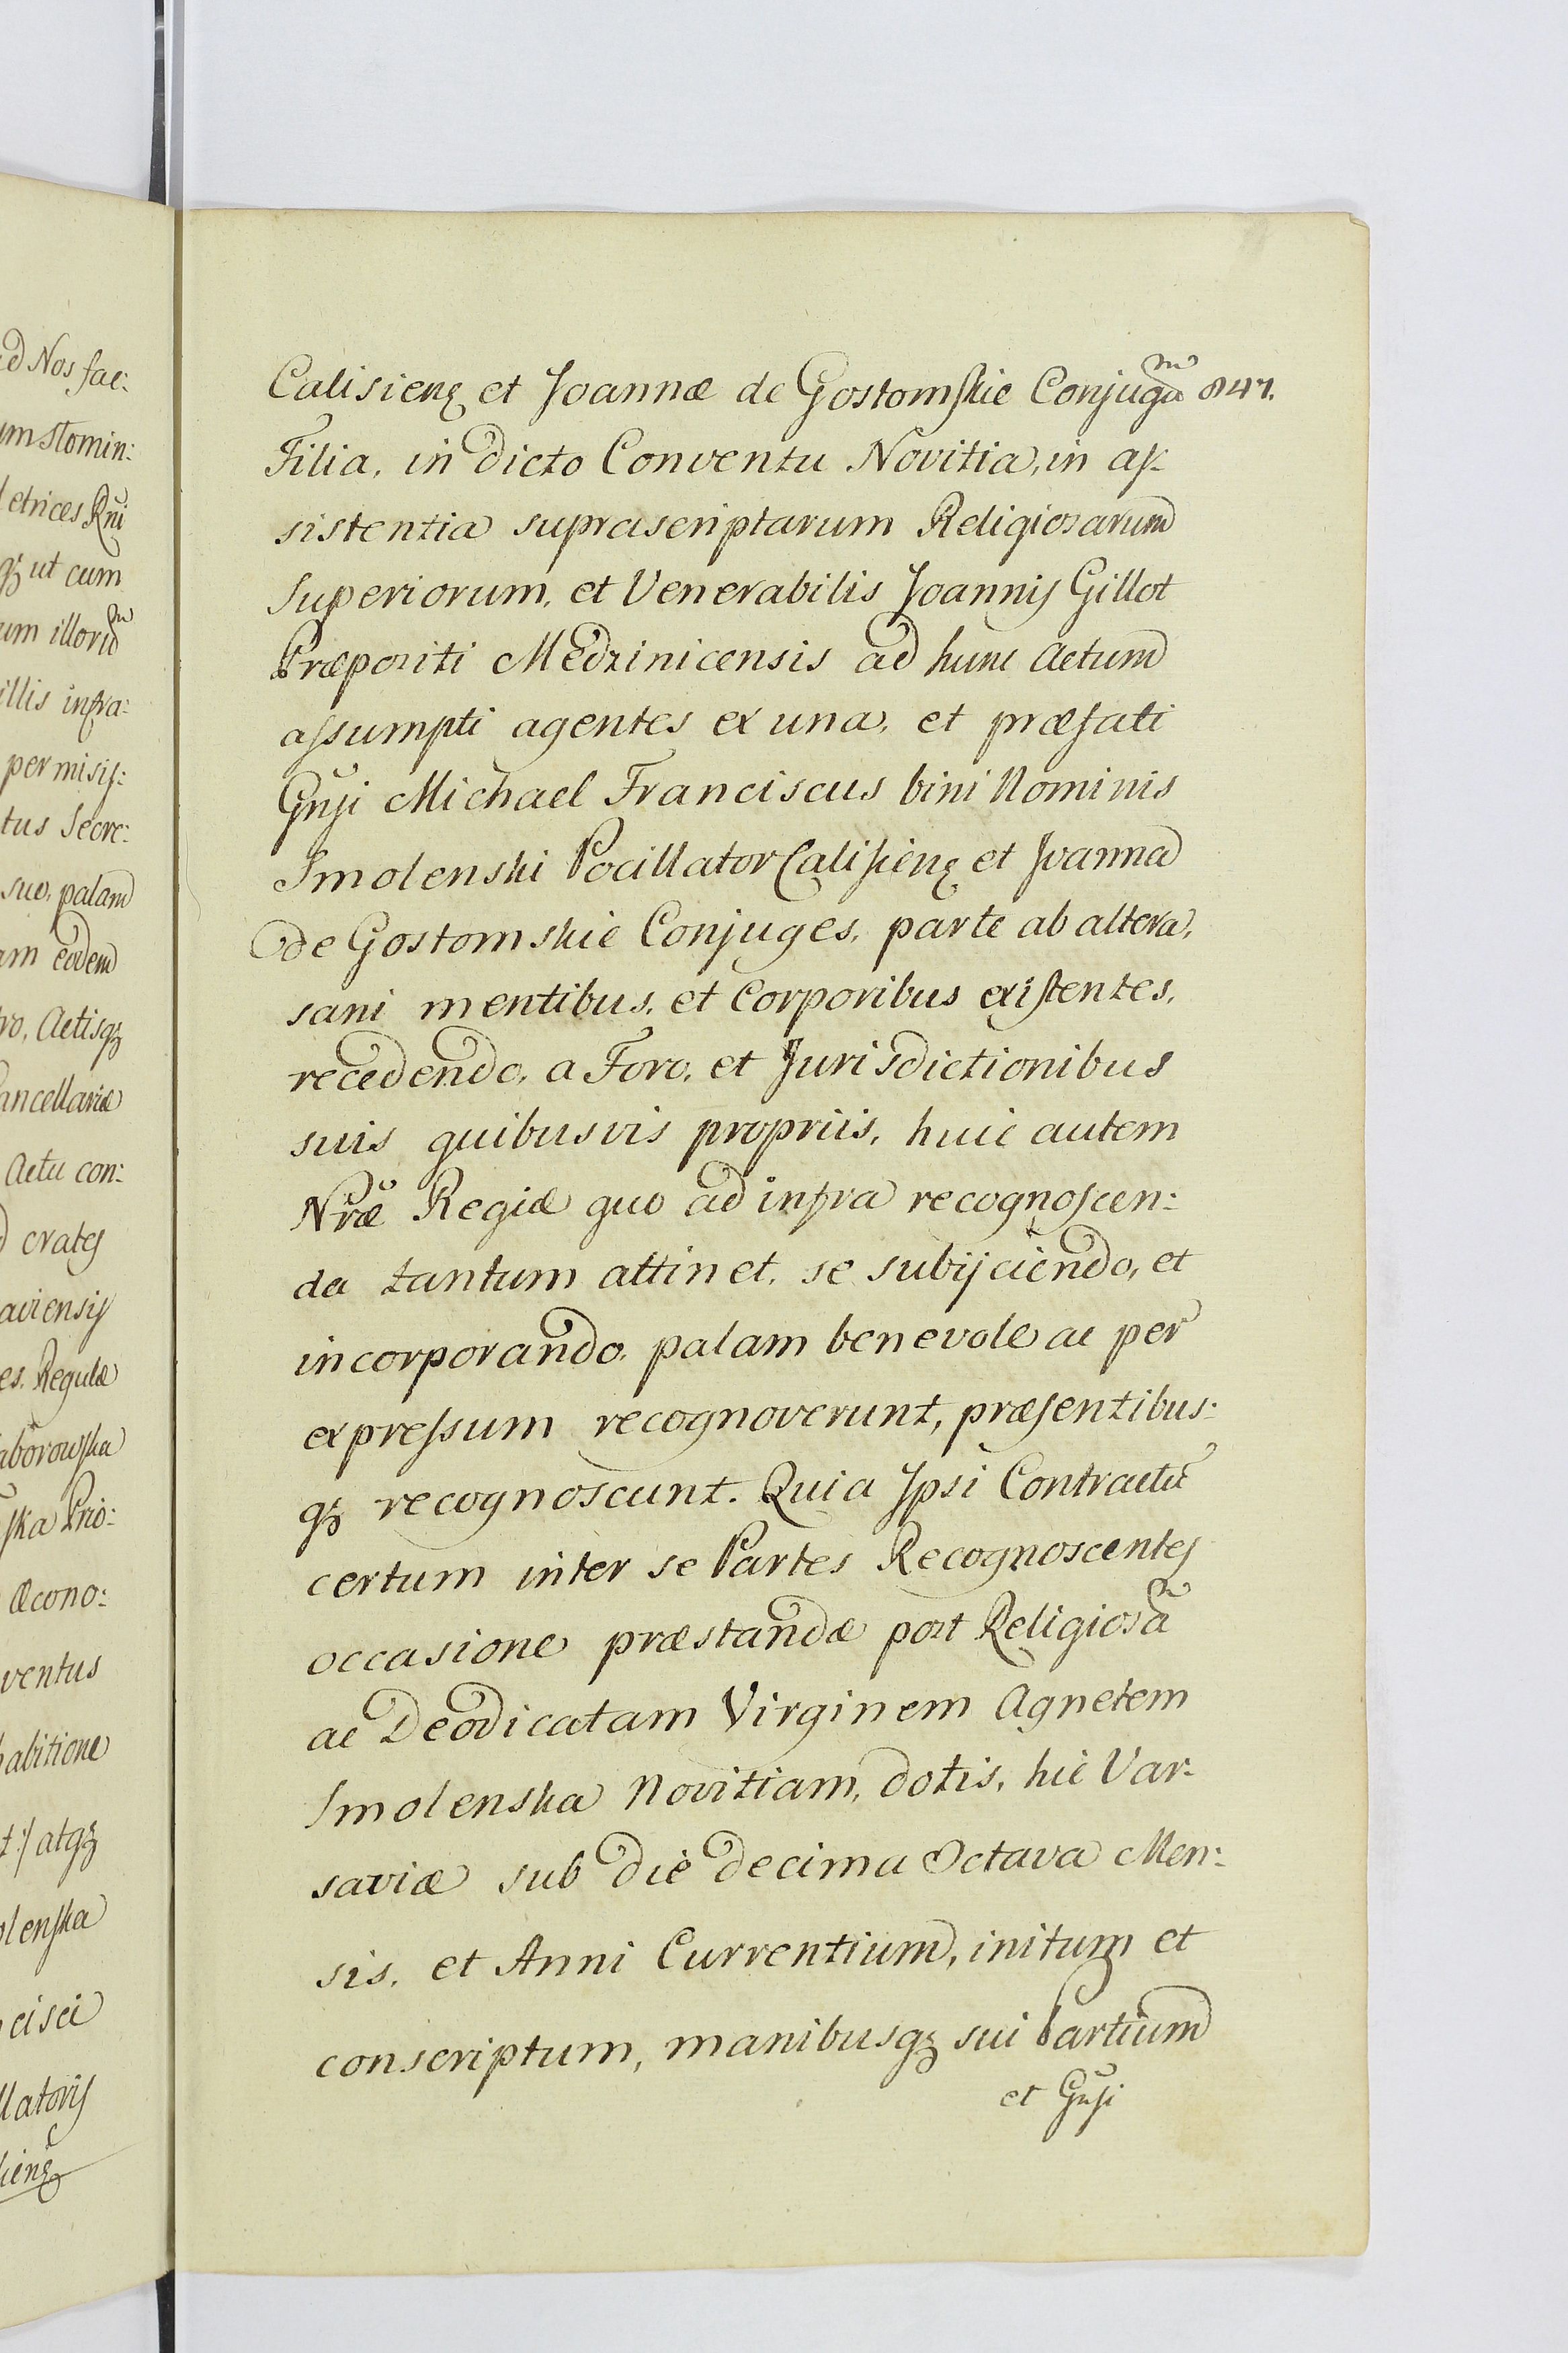 ed Nos fac:
um stomin:
letrices Rñi
qꝫ ut cum
um illorũ
illis infra:
permisiſ:
tus Secre:
suo, palam
am eodem
ro, Actisqꝫ
Cancellariæ
Actu con:
crates
aviensis
es. Regulæ
aborowſka
ſka Prio:
æcono:
ventus
habitione
t:/ atqꝫ
olenſka
cisci
llatoris
Calisienꝫ et Joannæ de Gostomſkie Conjugũ 847.
Filia, in dicto Conventu Novitia, in aſ:
sistentia suprascriptarum Religiosarum
Superiorum, et Venerabilis Joannis Gillot
Præpositi Medzinicensis ad hunc Actum
aſsumpti agentes ex una, et præfati
Gñsi Michael Franciscus bini Nominis
Smolenski Pocillator Caliſienꝫ et Joanna
de Gostomskie Conjuges, parte ab altera,
sani mentibus, et Corporibus exiſtentes,
recedendo, a Foro, et Jurisdictionibus
suis quibusvis propriis, huic autem
Nr̃æ Regiæ quo ad infra recognoſcen:
da tantum attinet, se subijciendo, et
incorporando, palam benevole ac per
expreſsum recognoverunt, præſentibus:
qꝫ recognoscunt. Quia Ipsi Contractũ
certum inter se Partes Recognoscentes
occasione præstandæ post Religiosã
ac Deodicatam Virginem Agnetem
Smolenska Novitiam, dotis, hic Var:
saviæ sub die decima Octava Men:
sis, et Anni Currentium, initum et
conscriptum, manibusqꝫ sui Partium
et Gñſi